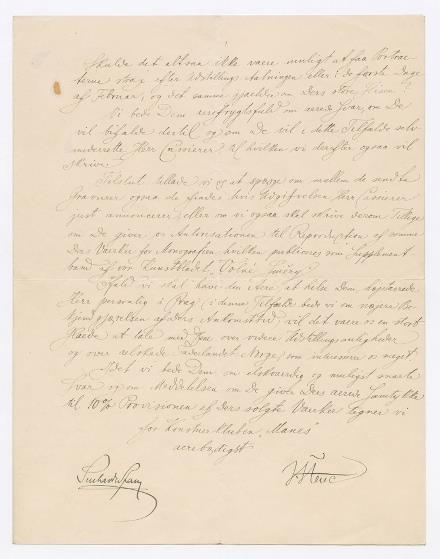 Skulde det altsaa ikke være muligt at faa Portræ-
terne strax efter Udstillings slutningen eller i de første Dage
af Februar, og det samme gjælder om Ders store Himm?
Vi bede Dem ærefrygtsfuld om ærede Svar, om De
vil bifalde dertil og om De vil i dette Tilfælde selv
underrette Herr Cassierer til hvilken vi derefter ogsaa vil
skrive.
Tilslut tillade vi os at spørge om mellem de sendte
Gravurer ogsaa de findes, hvis Udgifvelse Herr Cassierer
just annoncerer, eller om vi ogsaa skal skrive derom. Tillige
om De giver os Autorisationen til Reproduktion af somme
Ders Værker for Monografien hvilken publiceres som Supplement
band af vor Kunstbladet "Volné Směry"?
Ifald vi skal have den Ære, at hilse Dem, højtærede
Herr personlig i Prag (i denne Tilfælde bede vi om nøjere Be-
stjemgjørelsen af Ders Ankomsttid) vil det være os en stor
Glæde at tale med Dem over videre Udstillingsmuligheder
og over selve Fæderlandet Norge, som interesserer os meget.
Idet vi bede Dem om elskværdig og muligst snarte
Svar og om Meddelelsen om De giver Ders ærede Samtykke
til 10% Provisionen af Ders solgte Værker tegner vi
for Kunstnerklubben "Manes"
ærebødigst